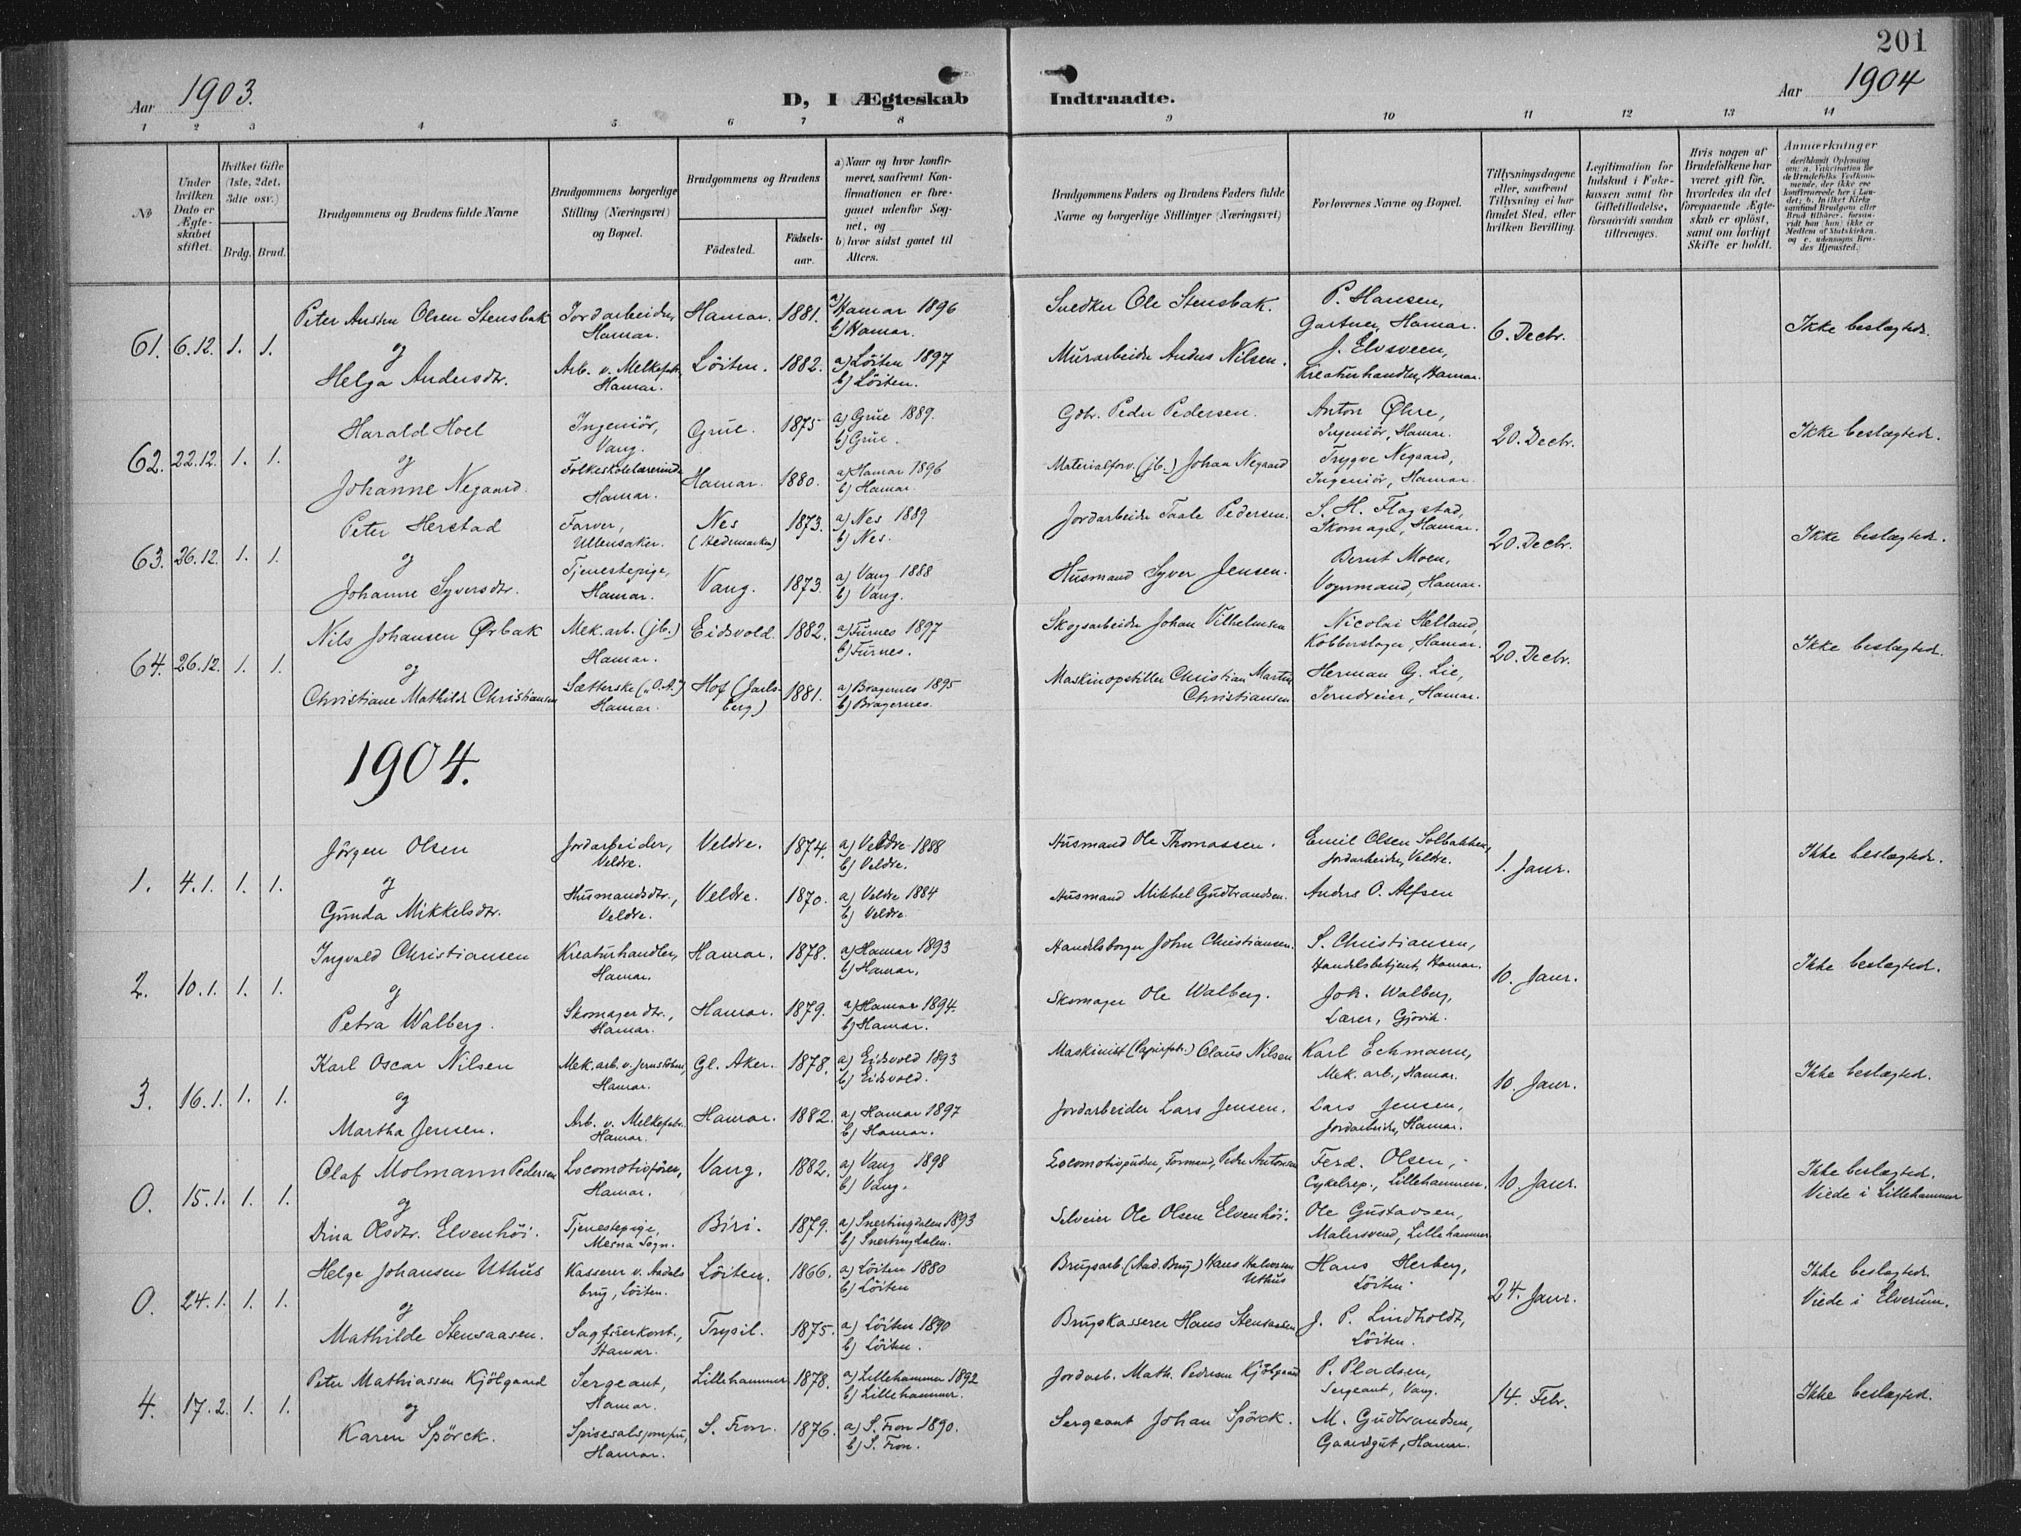 201
Aar 1903.
D, I Ægteskab Indtraadte.
Aar 1904
1 2 3 4 5 6 7 8 9 10 11 12 13 14
№
Under hvilken Dato er Ægteskabet stiftet.
Hvilket Gifte (1ste, 2det, 3dte osv.)
Brdg. Brud.
Brudgommens og Brudens fulde Navne
Brudgommens borgerlige Stilling (Næringsvei) og Bopæl.
Brudgommens og Brudens
Fødested.
Fødselsaar.
a) Naar og hvor konfirmeret, saafremt Konfirmationen er foregaaet udenfor Sognet, og
b) hvor sidst gaaet til Alters.
Brudgommens Faders og Brudens Faders fulde Navne og borgerlige Stillinger (Næringsvei)
Forlovernes Navne og Bopæl.
Tillysningsdagene eller, saafremt Tillysning ei har fundet Sted, efter hvilken Bevilling.
Legitimation for Indskud i Enkekassen samt for Giftetilladelse, forsaavidt saadan tiltrænges.
Hvis nogen af Brudefolkene har været gift før, hvorledes da det foregaaende Ægteskab er opløst, samt om lovligt Skifte er holdt.
Anmærkninger
61. 6.12. 1. 1.
Peter Olsen Stensbak Jordarbeider, Hamar. Hamar. 1881. a) Hamar 1896 b) Hamar.
og
Helga Andersdtr. Arb. v. Melkefabr. Hamar. Löiten. 1882. a) Löiten 1897 b) Löiten.
Ole Stensbak. P. Hansen, Gartner, Hamar. 6. Decbr. Ikke beslægted.
Murarbeider Anders Nilsen. J. Elvsveen, Kreaturhandler, Hamar.
62. 22.12. 1. 1.
Harald Hoel Ingeniör, Vang. Grue. 1875 a) Grue 1889. b) Grue.
og
Johanne Negaard. Folkeskolelærerinde Hamar. Hamar. 1880. a) Hamar 1896 b) Hamar.
Gbr. Peder Pedersen. Anton Øhre, Ingeniör, Hamar. 20. Decbr. Ikke beslægtede.
Materialforv. (jb.) Johan Negaard Trygve Negaard, Ingeniör, Hamar.
63. 26.12. 1. 1.
Peter Herstad Farver, Ullensaker. Nes (Hedemarken) 1873. a) Nes 1889 b) Nes.
og
Johanne Syversdtr. Tjenestepige, Hamar. Vang. 1873. a) Vang 1888 b) Vang.
Jordarbeider Taale Pedersen. S. H. Flagstad, Skomager, Hamar. 20. Decbr. Ikke beslægted.
Husmand Syver Jensen. Bernt Moen, Vognmand, Hamar.
64. 26.12. 1. 1.
Nils Johansen Ørbak Mek. arb. (jb.) Hamar. Eidsvold. 1882. a) Furnes 1897 b) Furnes.
og
Christiane Mathilde Christiansen Sætterske ("O.A.") Hamar. Hof (Jarlsberg) 1881. a) Bragernes 1895 b) Bragernes.
Skogsarbeider Johan Vilhelmsen Nicolai Helland, Kobberslager, Hamar. 20. Decbr. Ikke beslægted.
Maskinopstiller Christian Martin Christiansen Herman G. Lie, Hamar.
1904.
1. 4.1. 1. 1.
Jörgen Olsen Jordarbeider, Veldre. Veldre. 1874. a) Veldre 1888 b) Veldre.
og
Gunda Mikkelsdtr. Husmandsdtr., Veldre. Veldre. 1870. a) Veldre 1884 b) Veldre.
Husmand Ole Thomassen. Emil Olsen Solbakken, Jordarbeider, Veldre. 1. Janr. Ikke beslægted.
Husmand Mikkel Gudbrandsen. Anders O. Alfsen
2. 10.1. 1. 1.
Ingvald Christiansen Kreaturhandler, Hamar. Hamar. 1878. a) Hamar 1893 b) Hamar.
og
Petra Walberg. Skomagerdtr., Hamar. Hamar. 1879. a) Hamar 1894. b) Hamar.
Handelsborger John Christiansen. S. Christiansen, Handelsbetjent, Hamar. 10. Janr. Ikke beslægted.
Skomager Ole Walberg. Joh. Walberg, Lærer, Gjövik.
3. 16.1. 1. 1.
Karl Oscar Nilsen Mek. arb. v. Jernstöberi, Hamar. Gl. Aker. 1878. a) Eidsvold 1893 b) Eidsvold.
og
Martha Jensen. Arb. v. Melkefabr. Hamar. Hamar. 1882. a) Hamar 1897 b) Hamar.
Maskinist (Papirfabr.) Claus Nilsen Karl Echmann, Mek. arb., Hamar. 10. Janr. Ikke beslægted.
Jordarbeider Lars Jensen. Lars Jensen, Jordarbeider, Hamar.
0. 15.1. 1. 1.
Olaf Molmann Pedersen Locomotivförer, Hamar. Vang. 1882. a) Vang 1898 b) Vang.
og
Dina Olsdtr. Elvenhöi. Tjenestepige, Mesna Sogn. Biri. 1879. a) Snertingdalen 1893 b) Snertingdalen.
Locomotivpudser, Peder Antonsen Ferd. Olsen, Cykelrep., Lillehammer. 10. Janr. Ikke beslægted. Viede i Lillehammer
Selveier Ole Olsen Elvenhöi. Ole Gustavsen, Malersvend, Lillehammer
0. 24.1. 1. 1.
Helge Johansen Uthus Kasserer v. Aadalsbrug, Löiten. Löiten. 1866. a) Löiten 1880 b) Löiten
og
Mathilde Stensaasen. Sagförerkont., Hamar. Trysil. 1875. a) Löiten 1890 b) Löiten.
Brugsarb. (Aad. Brug) Hans Halvorsen Uthus Hans Herberg, Löiten. 24. Janr. Ikke beslægted. Viede i Elverum.
Brugskasserer Hans Stensaasen J. P. Lindholdt, Löiten.
4. 17.2. 1. 1.
Peter Mathiassen Kjölgaard Sergeant, Hamar. Lillehammer 1878. a) Lillehammer 1892 b) Lillehammer.
og
Karen Spörck. Spisesalsjomfru, Hamar. S. Fron. 1876. a) S. Fron 1890. b) S. Fron.
Jordarb. Math. Pedersen Kjölgaard P. Pladsen, Sergeant, Vang. 14. Febr. Ikke beslægted.
Sergeant Johan Spörck. M. Gudbrandsen, Gaardsgut, Hamar.